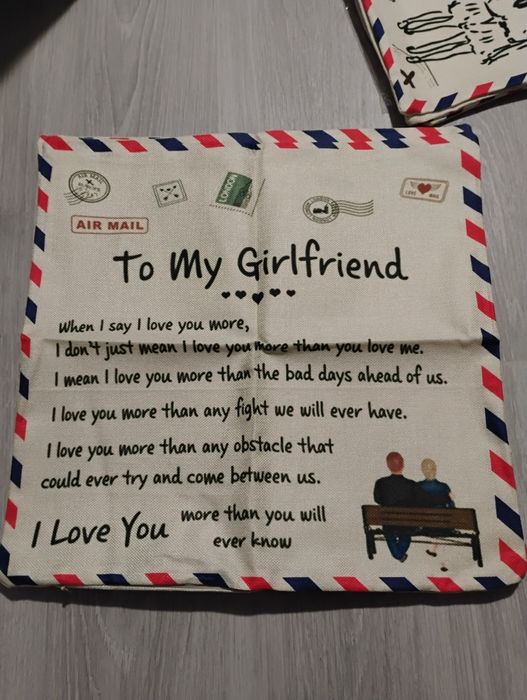 AIR MAIL
LONDON
LOVE MAIL
AIR MAIL
To My Girlfriend
When I say I love you more,
I don't just mean I love you more than you love me.
I mean I love you more than the bad days ahead of us.
I love you more than any fight we will ever have.
I love you more than any obstacle that
could ever try and come between us.
I Love You more than you will
ever know